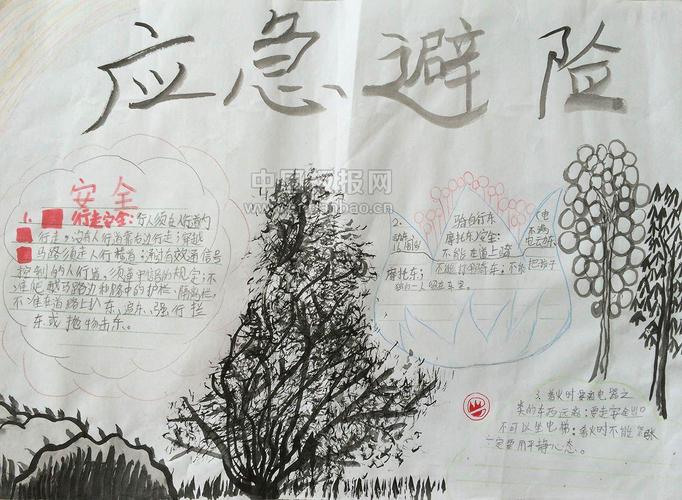 应急避险
安全
1. 行走安全:行人须走人行道内
行走,没有人行道靠右边行走;穿越
马路须走人行横道;通过有交通信号
控制的人行道,须遵守信号的规定;不
准爬越马路边和路中的护栏、隔离栏,
不准在道路上扒车、追车、强行拦
车或抛物击车。
2.
骑自行车
摩托车安全:
不能在道上骑
摩托车;
不能把孩子
独自一人留在车里。
3.着火时要离电器之
类的东西远点;要走安全出口
不可以坐电梯;着火时不能紧张
一定要用平静心态。